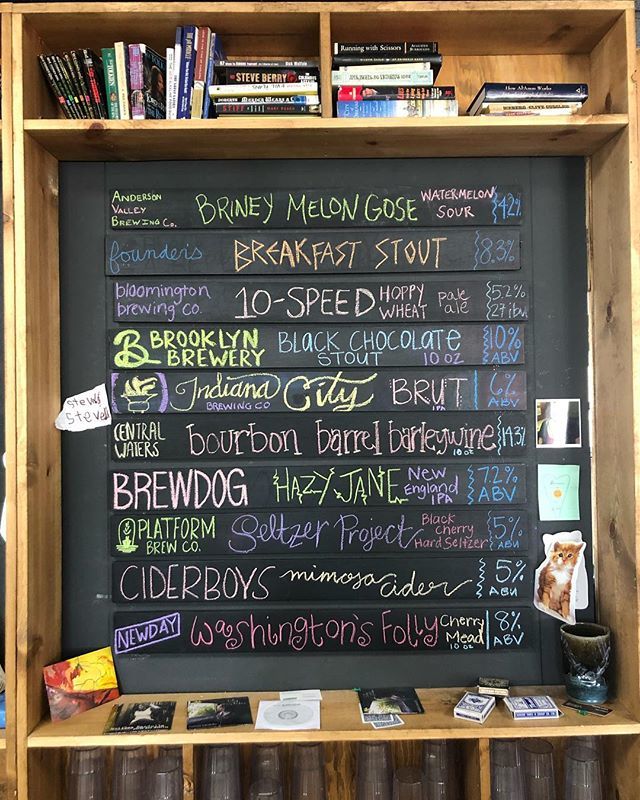 STEVE BERRY
Running with Scissors
ANDERSON VALLEY BREWING Co.
BRINEY MELON GOSE
WATERMELON SOUR
4.2%
founders
BREAKFAST STOUT
8.3%
bloomington brewing co.
10-SPEED
HOPPY WHEAT
pale ale
5.2%
27 ibu
B BROOKLYN BREWERY
BLACK CHOCOLATE STOUT
10 OZ
10% ABV
Indiana City
BREWING CO
BRUT
IPA
6% ABV
CENTRAL WATERS
bourbon barrel barleywine
10 oz
14.3%
BREWDOG
HAZY JANE
New England IPA
7.2% ABV
PLATFORM BREW CO.
Seltzer Project
Black Cherry Hard Seltzer
5% ABV
CIDERBOYS
mimosa cider
5% ABV
NEWDAY
Washington's Folly
Cherry Mead
10 oz
8% ABV